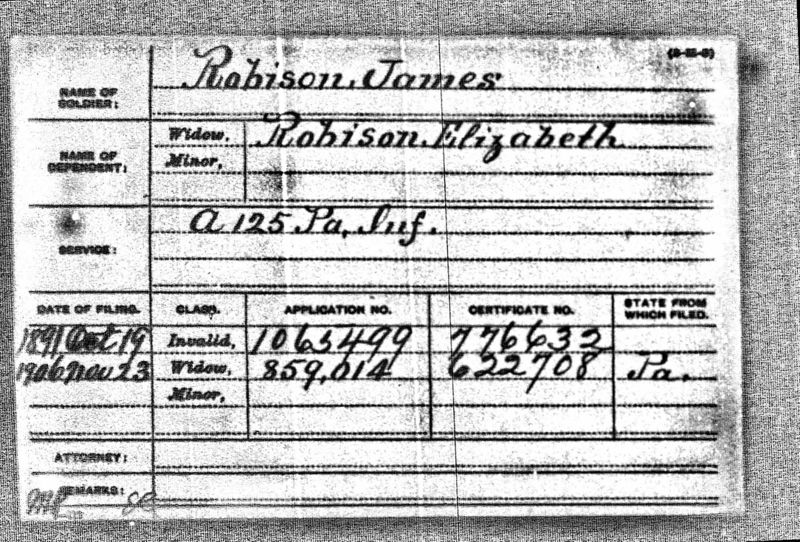 (3-111-3)
Robison, James
NAME OF
SOLDIER:
Widow, Robison, Elizabeth
NAME OF
DEPENDENT:
Minor,
A 125 Pa, Inf.
SERVICE:
DATE OF FILING. CLASS. APPLICATION NO. CERTIFICATE NO. STATE FROM
WHICH FILED.
1891 Oct 19 Invalid, 1063499 776632
1906 Nov 23 Widow, 859,014 622708 Pa.
Minor,
ATTORNEY:
REMARKS: